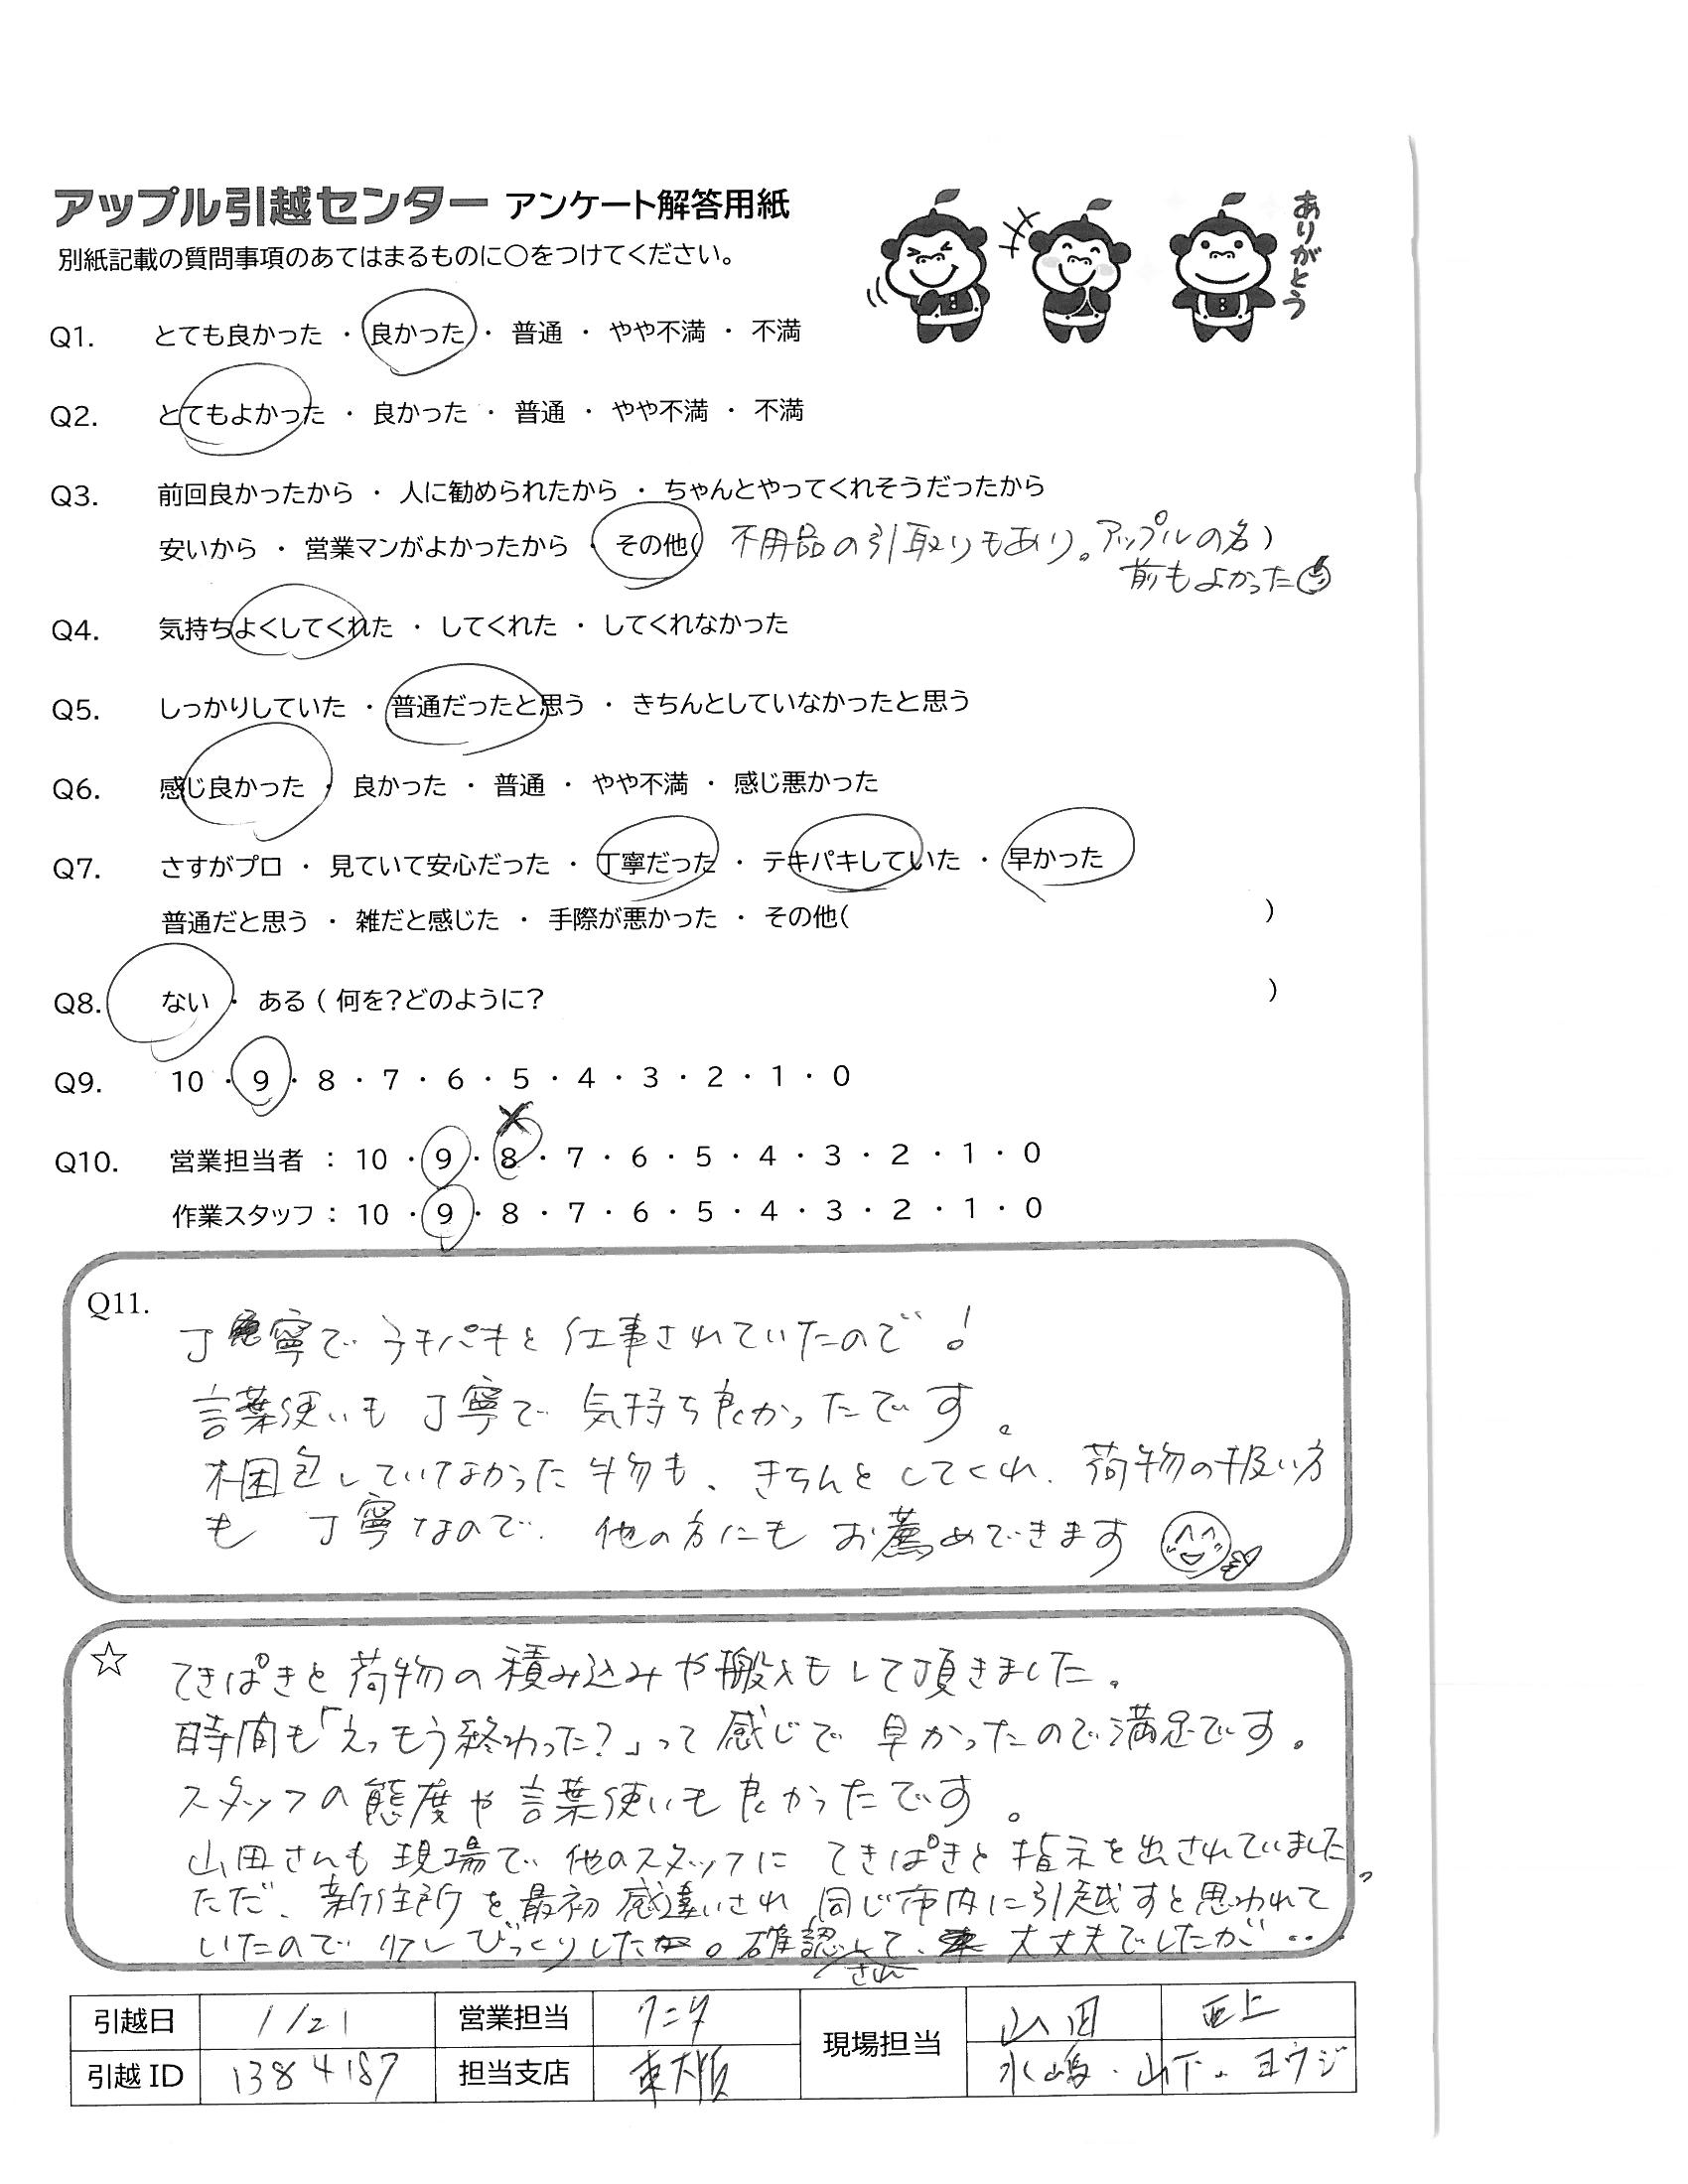 アップル引越センター アンケート解答用紙
別紙記載の質問事項のあてはまるものに〇をつけてください。
ありがとう
Q1. とても良かった ・ 良かった ・ 普通 ・ やや不満 ・ 不満
Q2. とてもよかった ・ 良かった ・ 普通 ・ やや不満 ・ 不満
Q3. 前回良かったから ・ 人に勧められたから ・ ちゃんとやってくれそうだったから
安いから ・ 営業マンがよかったから ・ その他( 不用品の引取りもあり。アップルの名 )
前もよかった
Q4. 気持ちよくしてくれた ・ してくれた ・ してくれなかった
Q5. しっかりしていた ・ 普通だったと思う ・ きちんとしていなかったと思う
Q6. 感じ良かった ・ 良かった ・ 普通 ・ やや不満 ・ 感じ悪かった
Q7. さすがプロ ・ 見ていて安心だった ・ 丁寧だった ・ テキパキしていた ・ 早かった
普通だと思う ・ 雑だと感じた ・ 手際が悪かった ・ その他( )
Q8. ない ・ ある ( 何を?どのように? )
Q9. 10 ・ 9 ・ 8 ・ 7 ・ 6 ・ 5 ・ 4 ・ 3 ・ 2 ・ 1 ・ 0
Q10. 営業担当者 : 10 ・ 9 ・ 8 ・ 7 ・ 6 ・ 5 ・ 4 ・ 3 ・ 2 ・ 1 ・ 0
作業スタッフ : 10 ・ 9 ・ 8 ・ 7 ・ 6 ・ 5 ・ 4 ・ 3 ・ 2 ・ 1 ・ 0
Q11.
丁寧でテキパキと仕事されていたので!
言葉使いも丁寧で気持ち良かったです。
梱包していなかった物も、きちんとしてくれ、荷物の扱い方
も丁寧なので、他の方にもお薦めできます
☆ てきぱきと荷物の積み込みや搬入もして頂きました。
時間も「えっもう終わった?」って感じで早かったので満足です。
スタッフの態度や言葉使いも良かったです。
山田さんも現場で他のスタッフにてきぱきと指示を出されていました。
ただ、新住所を最初感違いされ同じ市内に引越すと思われて
いたので少しびっくりした。確認されて、大丈夫でしたが…
引越日 1/21 営業担当 クニタ 現場担当 山田 西上
引越ID 1384187 担当支店 東大阪 水嶋・山下・ヨウジ